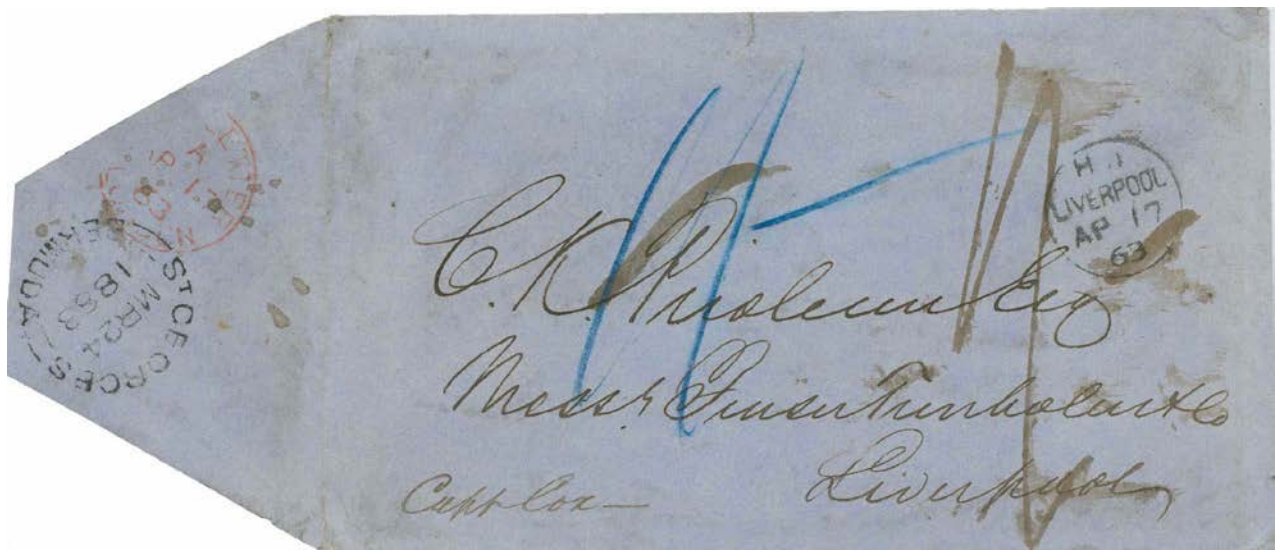 ST GEORGES
MR 24
1863
BERMUDA
AP
63
LIVERPOOL
AP 17
63
C. K. Prioleau Esq
Messrs Fraser Trenholm & Co
Liverpool
Capt Cox